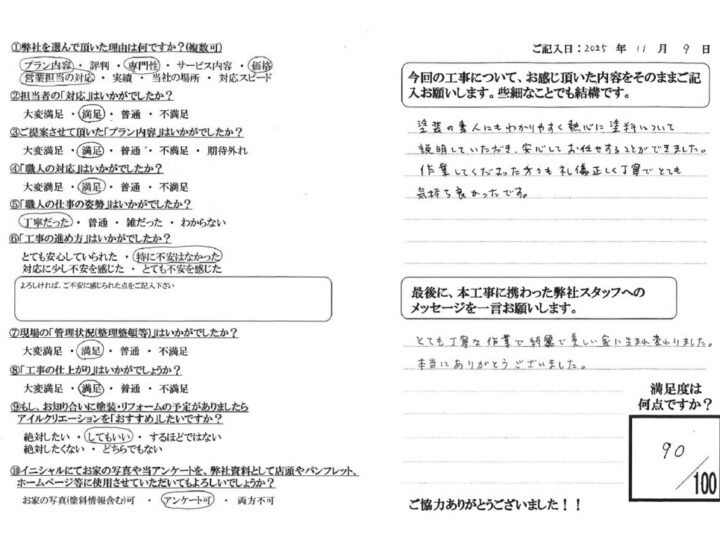 ①弊社を選んで頂いた理由は何ですか?(複数可)
プラン内容・評判・専門性・サービス内容・価格
営業担当の対応・実績・当社の場所・対応スピード
②担当者の「対応」はいかがでしたか?
大変満足・満足・普通・不満足
③ご提案させて頂いた「プラン内容」はいかがでしたか?
大変満足・満足・普通・不満足・期待外れ
④「職人の対応」はいかがでしたか?
大変満足・満足・普通・不満足
⑤「職人の仕事の姿勢」はいかがでしたか?
丁寧だった・普通・雑だった・わからない
⑥「工事の進め方」はいかがでしたか?
とても安心していられた・特に不安はなかった
対応に少し不安を感じた・とても不安を感じた
よろしければ、ご不安に感じられた点をご記入下さい
⑦現場の「管理状況(整理整頓等)」はいかがでしたか?
大変満足・満足・普通・不満足
⑧「工事の仕上がり」はいかがでしょうか?
大変満足・満足・普通・不満足
⑨もし、お知り合いに塗装・リフォームの予定がありましたら
アイルクリエーションを「おすすめ」したいですか?
絶対したい・してもいい・するほどではない
絶対したくない・どちらでもない
⑩イニシャルにてお家の写真や当アンケートを、弊社資料として店頭やパンフレット、
ホームページ等に使用させていただいてもよろしいでしょうか?
お家の写真(塗料情報含む)可・アンケート可・両方不可
ご記入日:2025年11月9日
今回の工事について、お感じ頂いた内容をそのままご記
入お願いします。些細なことでも結構です。
塗装の素人にもわかりやすく熱心に塗料について
説明していただき、安心してお任せすることができました。
作業してくださった方々も礼儀正しく丁寧でとても
気持ち良かったです。
最後に、本工事に携わった弊社スタッフへの
メッセージを一言お願いします。
とても丁寧な作業で綺麗で美しい家に生まれ変わりました。
本当にありがとうございました。
満足度は
何点ですか?
90
/100
ご協力ありがとうございました!!